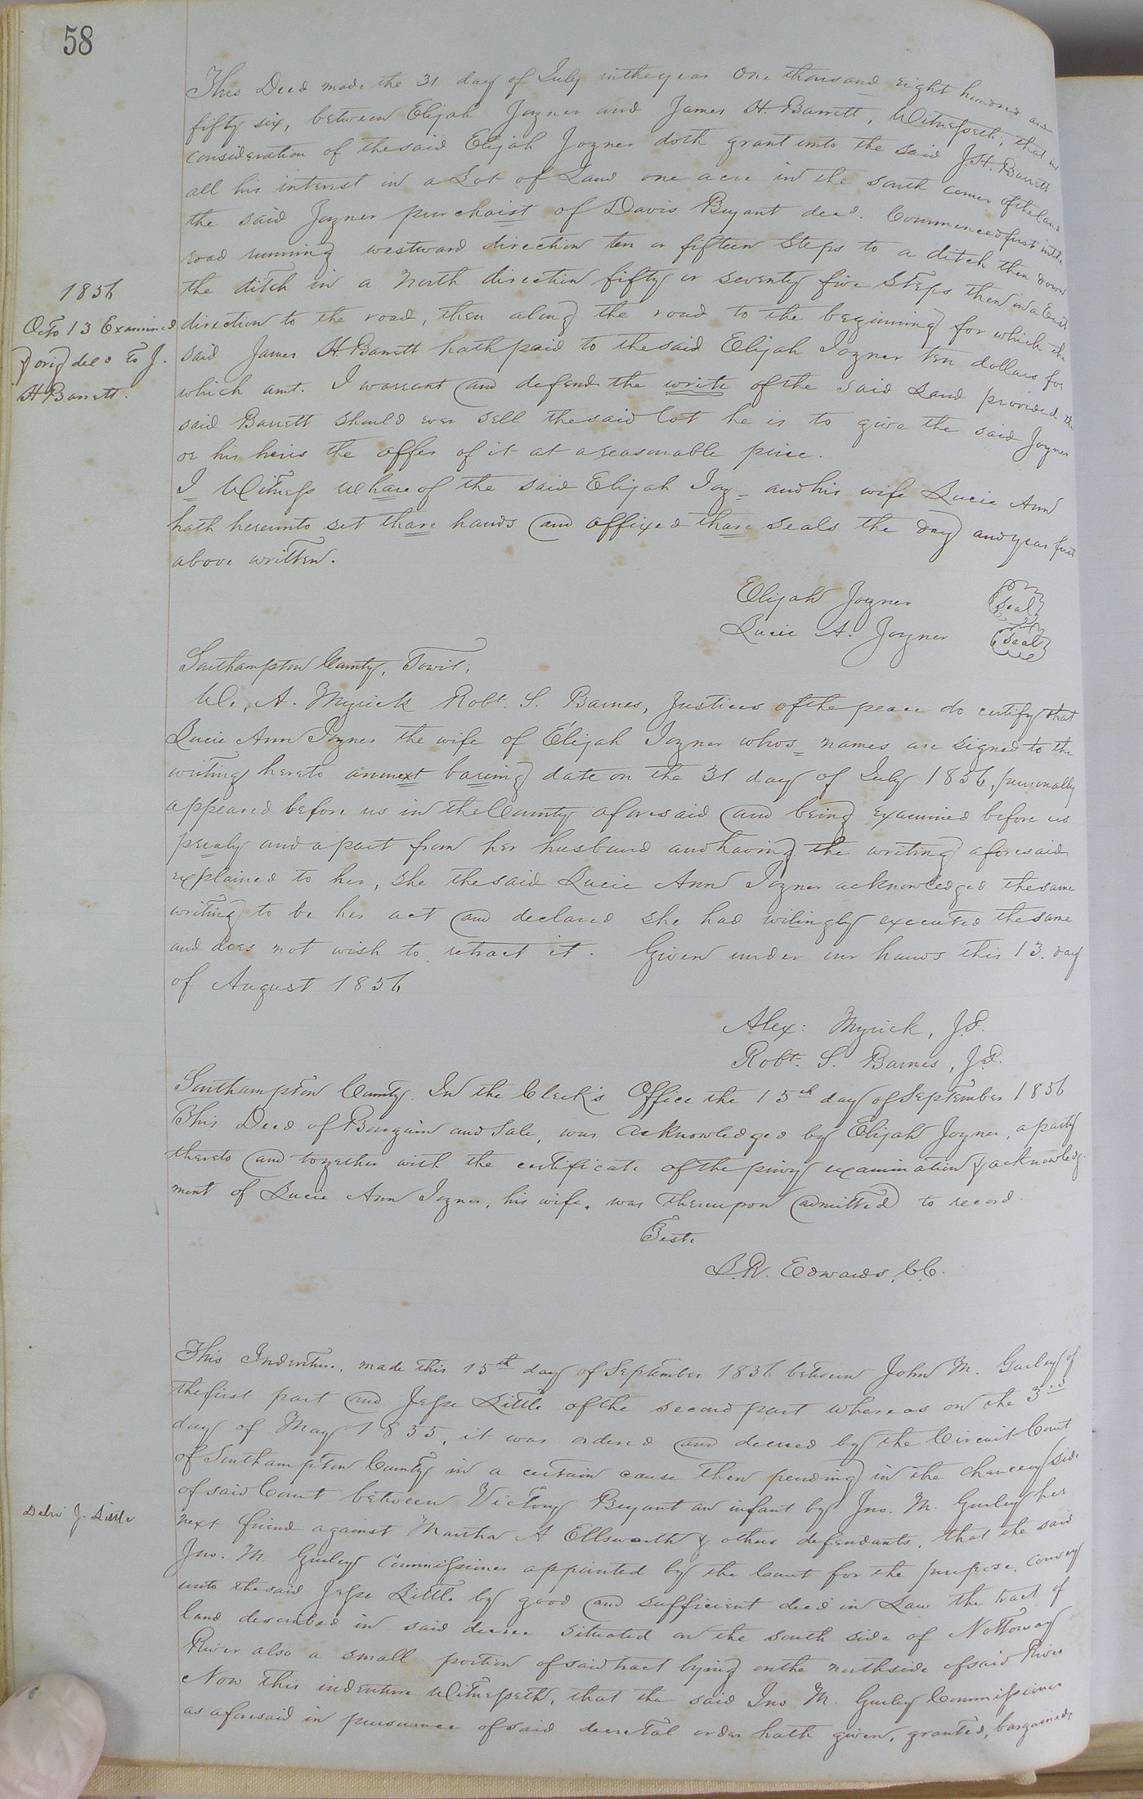 58
This Deed made the 31 day of July in the year One thousand eight hundred and
fifty six, between Elijah Joyner and James H. Barrett, Witnesseth, that in
consideration of the said Elijah Joyner doth grant unto the said J.H. Barrett
all his interest in a Lot of Land one acre in the south corner of the land
the said Joyner purchaist of Davis Bryant decd. Commenced first in the
road running westward direction ten or fifteen Steps to a ditch then down
the ditch in a North direction fifty or seventy five Steps then in a East
direction to the road, then along the road to the beginning for which the
said James H Barrett hath paid to the said Elijah Joyner ten dollars for
which amt. I warrant and defend the write of the said Land provided the
said Barrett should ever sell the said lot he is to give the said Joyner
or his heirs the offer of it at a reasonable price.
I Witness whare of the said Elijah Joy_ and his wife Lucie Ann
hath hereunto set thare hands and affixed thare seals the day and year first
above written.
Elijah Joyner Seal
Lucie A. Joyner Seal
1856
Octo 13 Examined
& orig deld to J.
H Barrett.
Southampton County, Towit,
We, A. Myrick Robt. S. Barnes, Justices of the peace do certify that
Lucie Ann Joyner the wife of Elijah Joyner whos_ names are signed to the
writing hereto annext baring date on the 31 day of July 1856, personally
appeared before us in the County aforesaid and being examined before us
privaly and apart from her husband and having the writing aforesaid
explained to her, she the said Lucie Ann Joyner acknowledged the same
writing to be her act and declared she had wilingly executed the same
and does not wish to retract it. Given under our hands this 13. day
of August 1856
Alex: Myrick, J.P.
Robt. S. Barnes, J.P.
Southampton County. In the Clerk's Office the 15th day of September 1856
This Deed of Bargain and Sale, was acknowledged by Elijah Joyner, a party
thereto and together with the certificate of the privy examination & acknowledg-
ment of Lucie Ann Joyner, his wife, was thereupon admitted to record.
Teste
L.R. Edwards, C.C.
This Indenture, made this 15th day of September 1856 between John M. Gurley of
the first part and Jesse Little of the second part whereas on the 3rd
day of May 1855, it was ordered and decreed by the Circuit Court
of Southampton County in a certain cause then pending in the chancery side
of said Court between Victory Bryant an infant by Jno. M. Gurley her
next friend against Martha A Ellsworth & others defendants, that the said
Jno. M. Gurley Commissioner appointed by the Court for the purpose, convey
unto the said Jesse Little by good and sufficient deed in Law the tract of
land described in said decree situated on the south side of Nottoway
River also a small portion of said tract lying on the north side of said River
Now this indenture Witnesseth, that the said Jno M. Gurley Commissioner
as aforesaid in pursuance of said decretal order hath given, granted, bargained,
Deld J. Little